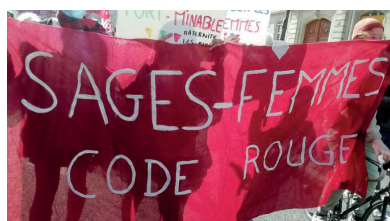 MINABLE
FEMMES
MATERNITÉ
SAGES-FEMMES
CODE ROUGE